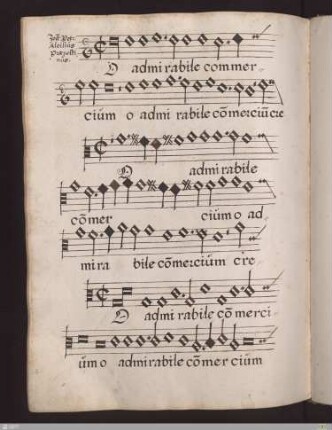 O admi rabile commer-
cium o admi rabile cõmerciũ cre
O admi rabile
cõmer cium o ad-
mi ra bile cõmercium cre-
O admi rabile cõ merci-
ũm o admi rabile cõmer cium